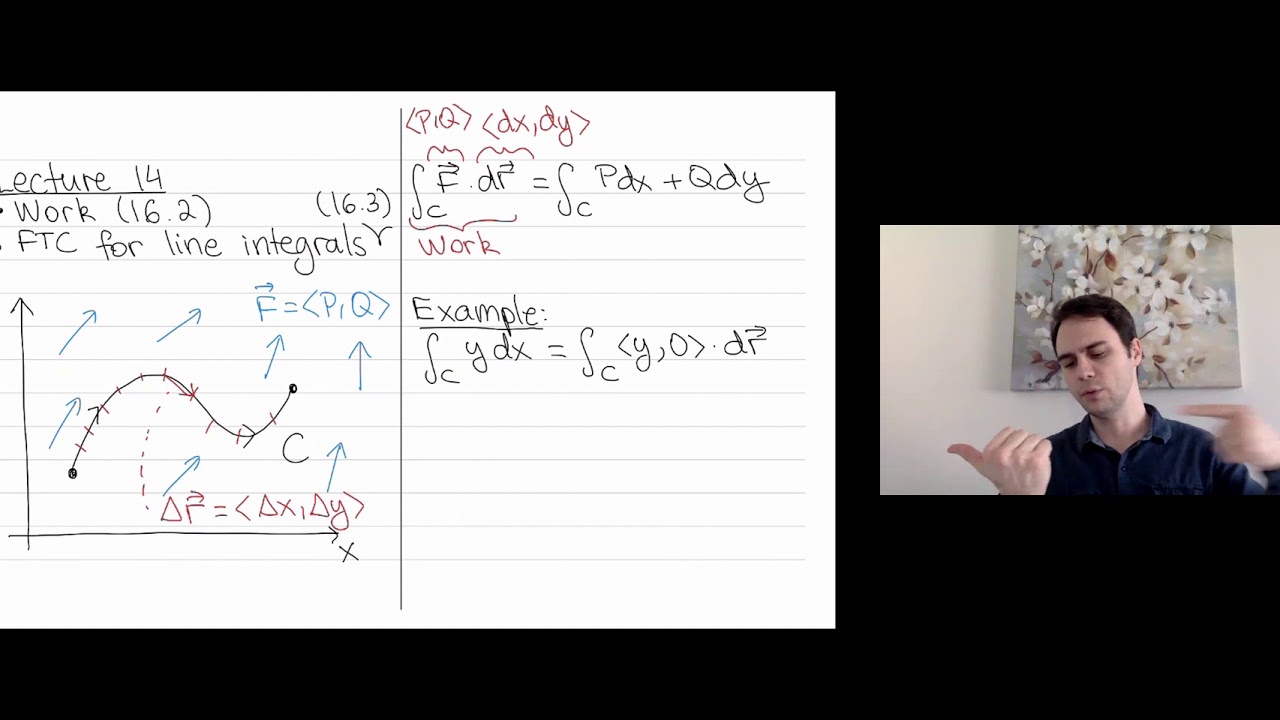 Lecture 14
• Work (16.2)
(16.3)
• FTC for line integrals
F⃗ = ⟨P,Q⟩
C
Δr⃗ = ⟨Δx, Δy⟩
x
⟨P,Q⟩ ⟨dx,dy⟩
∫_C F⃗ · dr⃗ = ∫_C Pdx + Qdy
Work
Example:
∫_C y dx = ∫_C ⟨y, 0⟩ · dr⃗